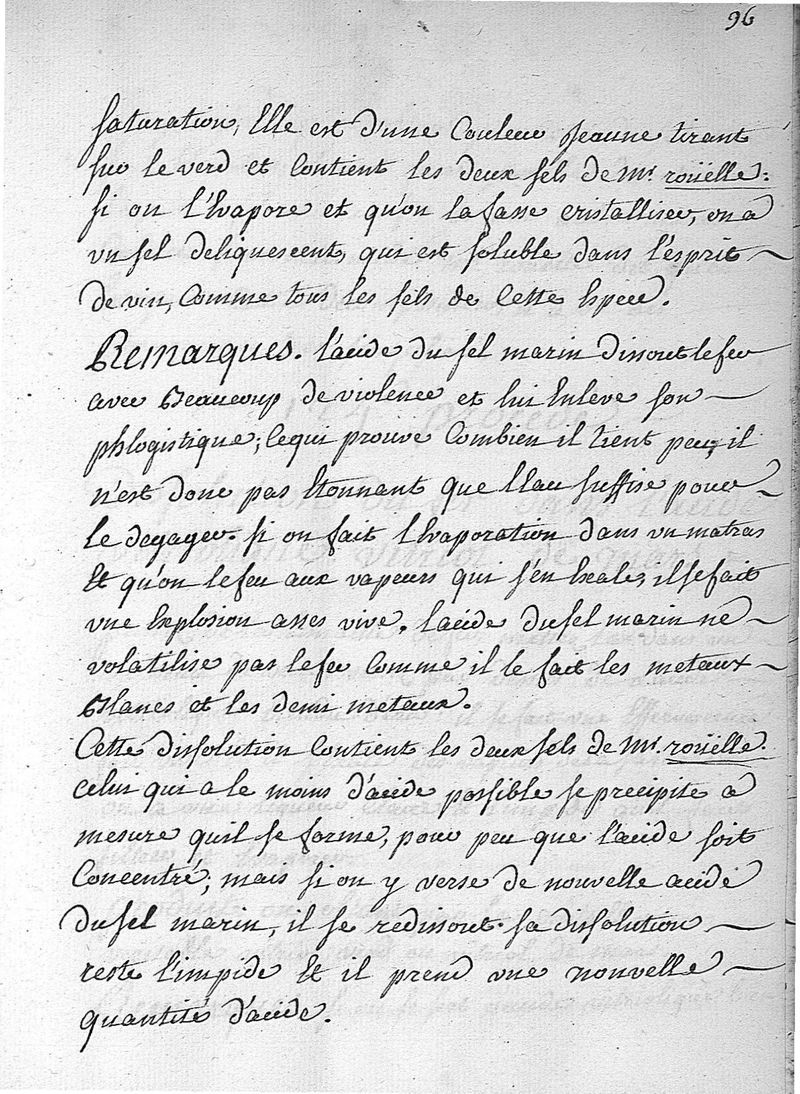 96
saturation, Elle est d'une Couleur jeaune tirant
sur le verd et Contient les deux sels de Mr. roüelle:
si on l'Evapore et qu'on la fasse cristalliser, on a
vn sel deliquescent, qui est soluble dans l'esprit
de vin, Comme tous les sels de Cette Espece.
Remarques. l'acide du sel marin dissout le fer
avec Beaucoup de violence et lui Enleve son
phlogistique; Ce qui prouve Combien il tient peu; il
n'est donc pas Etonnant que l'Eau suffise pour
le degager. si on fait l'Evaporation dans vn matras
Et qu'on le feu aux vapeurs qui s'en Exale, il se fait
vne Explosion asses vive. l'acide du sel marin ne
volatilise pas le fer Comme il le fait les metaux
Blancs et les demi metaux.
Cette dissolution Contient les deux sels de Mr. roüelle.
Celui qui a le moins d'acide possible se precipite a
mesure qu'il se forme, pour peu que l'acide soit
Concentré; mais si on y verse de nouvelle acide
du sel marin, il se redissout. sa dissolution
reste l'impide Et il prend vne nouvelle
quantité d'acide.